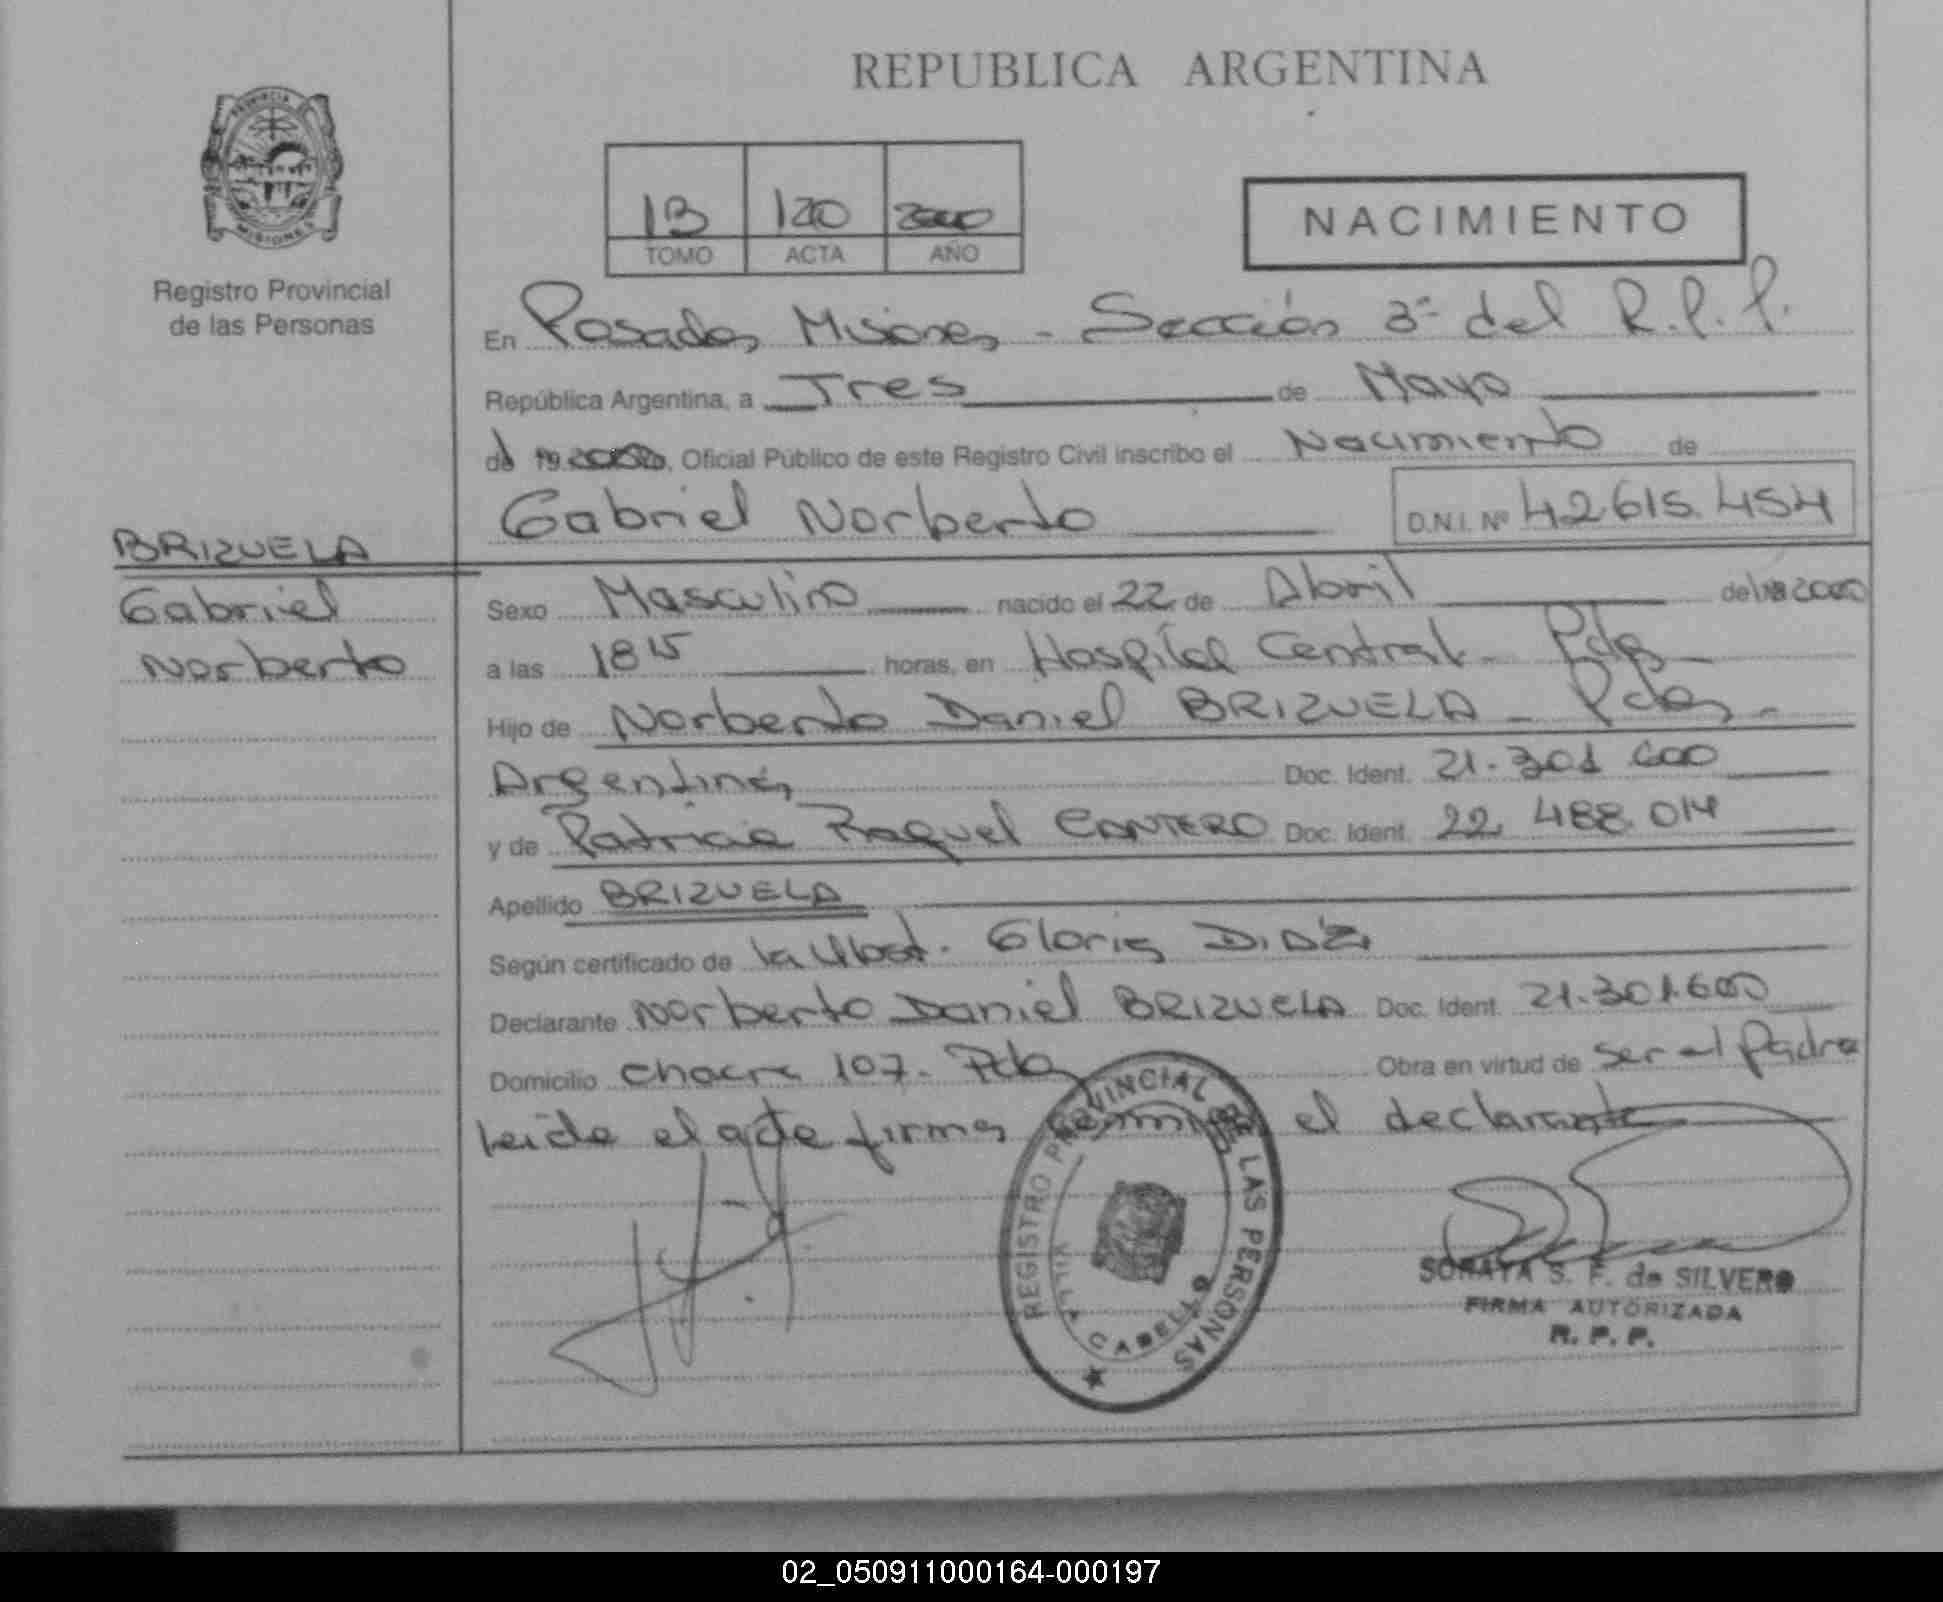 REPUBLICA ARGENTINA
PROVINCIA
MISIONES
Registro Provincial
de las Personas
1B 120 2000
TOMO ACTA AÑO
NACIMIENTO
En Posadas, Misiones, - Sección 3ª del R.P.P.
República Argentina, a Tres de Mayo
de 19 2000, Oficial Público de este Registro Civil inscribo el Nacimiento de
Gabriel Norberto D.N.I. Nº 42.615.454
BRIZUELA
Gabriel
Norberto
Sexo Masculino nacido el 22 de Abril del 2000
a las 18 15 horas, en Hospital Central - Pdas
Hijo de Norberto Daniel BRIZUELA - Pdas -
Argentina, Doc. Ident. 21.301.600
y de Patricia Raquel CANTERO Doc. Ident. 22.488.014
Apellido BRIZUELA
Según certificado de la Obst. Gloria DIAZ
Declarante Norberto Daniel BRIZUELA Doc. Ident. 21.301.600
Domicilio Chacra 107. Pdas Obra en virtud de ser el Padre
Leida el acta firma conmigo el declarante
REGISTRO PROVINCIAL DE LAS PERSONAS
VILLA CABELLO
SORAYA S. F. de SILVERO
FIRMA AUTORIZADA
R. P. P.
02_050911000164-000197